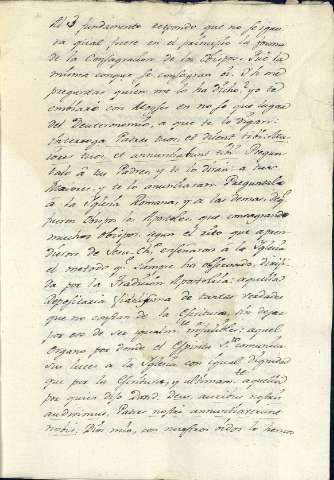 Al 3 fundamento respondo, que no se igno-
ra qual fuese en el principio la forma
de la Consagracion de los Obispos. Fué la
misma conque se consagran oi. I si me
preguntas quien me lo ha dicho, yo te
emplazo con Moyses en no se que lugar
del Deuteronomio, a que te lo digan:
Interroga Patres tuos, et dicent tibi: Ma-
iores tuos, et annuntiabunt tibi. Pregun-
talo à tus Padres, y te lo diràn: a tus
Maiores, y te lo anunciaran. Preguntalo
à la Iglesia Romana, y a las demas, des-
pues los Apostoles, que consagraron
muchos Obispos segun el rito que apren-
dieron de Jesu-Chto. enseñaron à la Iglesia
el metodo qe. siempre ha observado, deriba-
da por la Tradicion Apostolica: aquella
depositaria fidelisima de tantas verdades
que no constan de la Escritura, sin dejar
por eso de ser igualmte. creibles: aquel
organo por donde el Espiritu Sto. comunica
sus luces a la Iglesia con igual dignidad
que por la Escritura, y ultimamte. aquella
por quien dijo David. Deus, auribus nostris
audivimus, Patres nostri annuntiaverunt
nobis, Dios mio, con nuestros oidos lo hemos